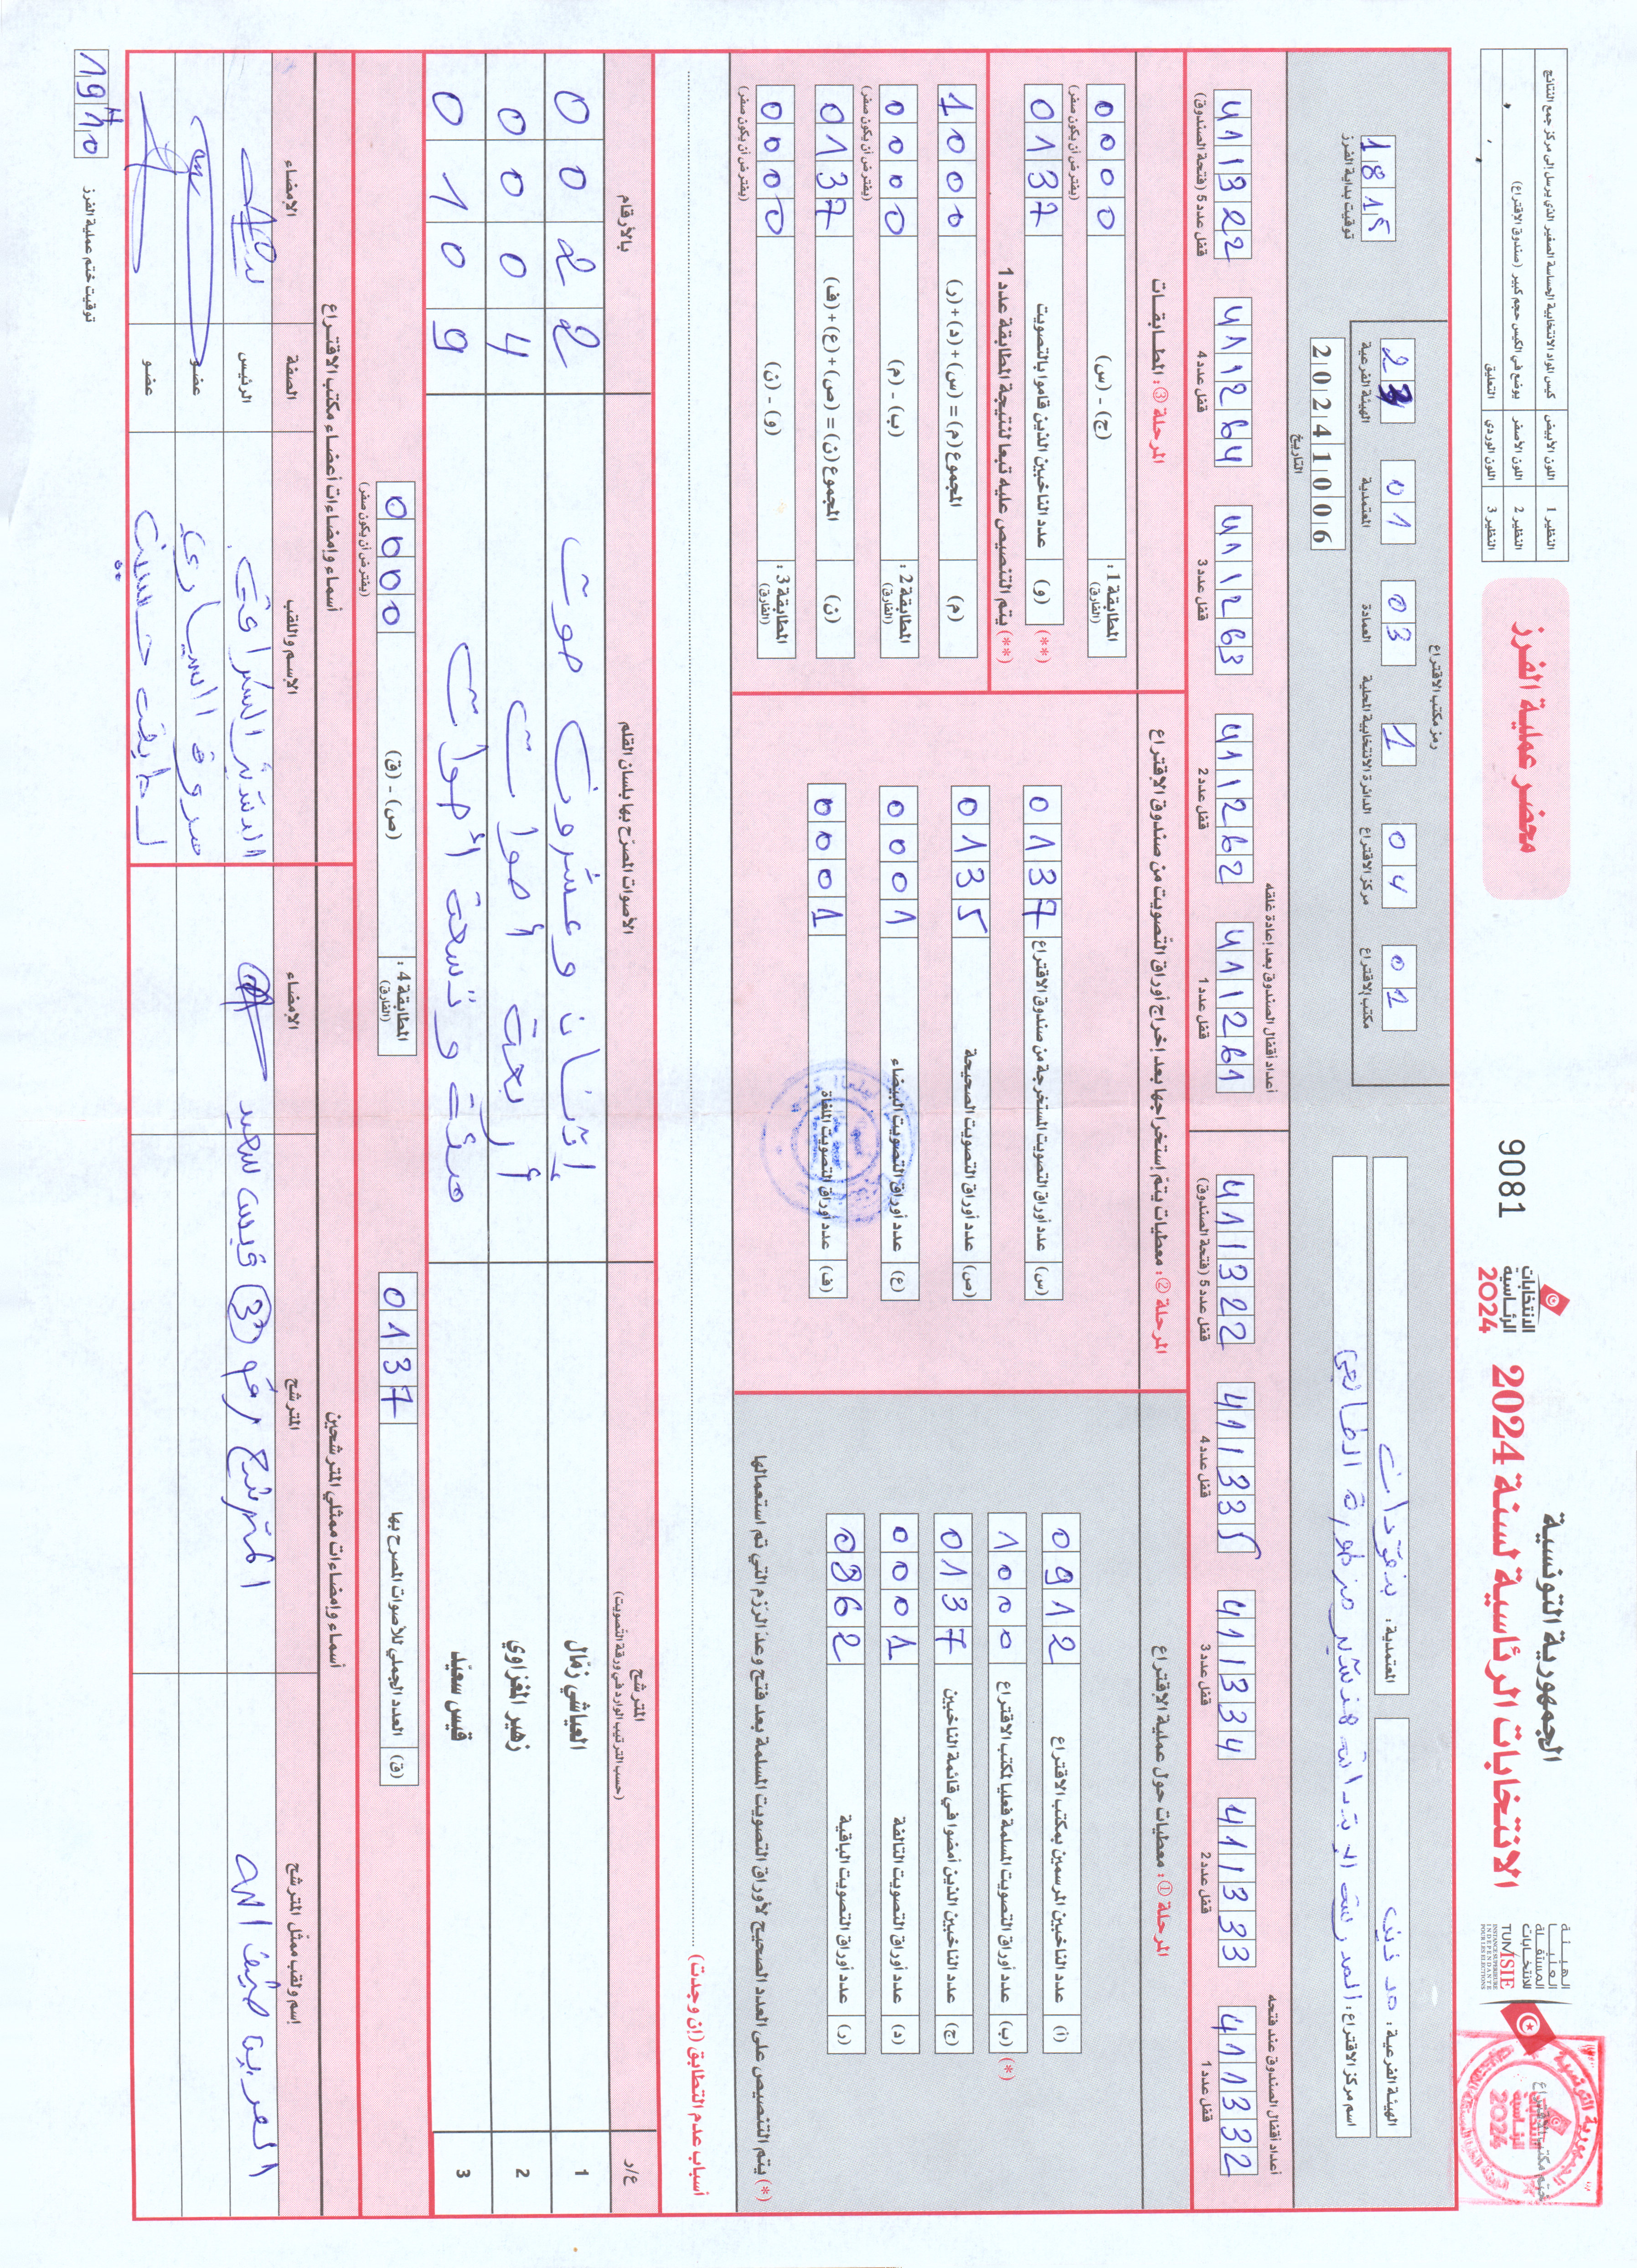 الجمهورية التونسية
الانتخابات الرئاسية لسنة 2024
الهيئة العليا المستقلة للانتخابات
TUNISIE
INSTANCE SUPERIEURE INDEPENDANTE POUR LES ELECTIONS
الانتخابات الرئاسية 2024
9081
محضر عملية الفرز
النظير 1 اللون الأبيض كيس المواد الانتخابية الحساسة الصغير الذي يرسل إلى مركز جمع النتائج
النظير 2 اللون الأصفر يوضع في الكيس حجم كبير (صندوق الاقتراع)
النظير 3 اللون الوردي التعليق
ختم مكتب الاقتراع
الهيئة الفرعية:
المعتمدية:
اسم مركز الاقتراع:
رمز مكتب الاقتراع
الهيئة الفرعية
المعتمدية 01
العمادة 03
الدائرة الانتخابية المحلية 1
مركز الاقتراع 04
مكتب الاقتراع 01
التاريخ 20241006
توقيت بداية الفرز 1815
أعداد أقفال الصندوق عند فتحه
قفل عدد 1 411332
قفل عدد 2 411333
قفل عدد 3 411334
قفل عدد 4 411335
قفل عدد 5 (فتحة الصندوق) 411322
أعداد أقفال الصندوق بعد إعادة غلقه
قفل عدد 1 411261
قفل عدد 2 411262
قفل عدد 3 411263
قفل عدد 4 411264
قفل عدد 5 (فتحة الصندوق) 411322
المرحلة ①: معطيات حول عملية الاقتراع
(أ) عدد الناخبين المرسمين بمكتب الاقتراع 0912
(*) (ب) عدد أوراق التصويت المسلمة فعليا لمكتب الاقتراع 1000
(ج) عدد الناخبين الذين أمضوا في قائمة الناخبين 0137
(د) عدد أوراق التصويت التالفة 0001
(ر) عدد أوراق التصويت الباقية 0862
(*) يتم التنصيص على العدد الصحيح لأوراق التصويت المسلمة بعد فتح وعدّ الرزم التي تم استعمالها
المرحلة ②: معطيات يتم إستخراجها بعد إخراج أوراق التصويت من صندوق الاقتراع
(س) عدد أوراق التصويت المستخرجة من صندوق الاقتراع 0137
(ص) عدد أوراق التصويت الصحيحة 0135
(ع) عدد أوراق التصويت البيضاء 0001
(ف) عدد أوراق التصويت الملغاة 0001
المرحلة ③: المطابقات
المطابقة 1: (الفارق) (ج) - (س) 0000
(يفترض أن يكون صفر)
(**) (و) عدد الناخبين الذين قاموا بالتصويت 0137
(**) يتم التنصيص عليه تبعا لنتيجة المطابقة عدد 1
(م) المجموع (م) = (س)+(د)+(ر) 1000
المطابقة 2: (الفارق) (ب) - (م) 0000
(يفترض أن يكون صفر)
(ن) المجموع (ن) = (ص)+(ع)+(ف) 0137
المطابقة 3: (الفارق) (و) - (ن) 0000
(يفترض أن يكون صفر)
أسباب عدم التطابق (إن وجدت)
ع/ر المترشح (حسب الترتيب الوارد في ورقة التصويت) الأصوات المصرّح بها بلسان القلم بالأرقام
1 العياشي زمّال إثنان وعشرون صوت 0022
2 زهير المغزاوي أربعة أصوات 0004
3 قيس سعيّد مئة وتسعة أصوات 0109
(ق) العدد الجملي للأصوات المصرح بها 0137
المطابقة 4: (الفارق) (ص) - (ق) 0000
(يفترض أن يكون صفر)
أسماء وإمضاءات ممثلي المترشحين
إسم ولقب ممثل المترشح المترشح الإمضاء
المترشح رقم (3) قيس سعيد
أسماء وإمضاءات أعضاء مكتب الاقتراع
الإسم واللقب الصفة الإمضاء
الرئيس
عضو
عضو
توقيت ختم عملية الفرز 19H10